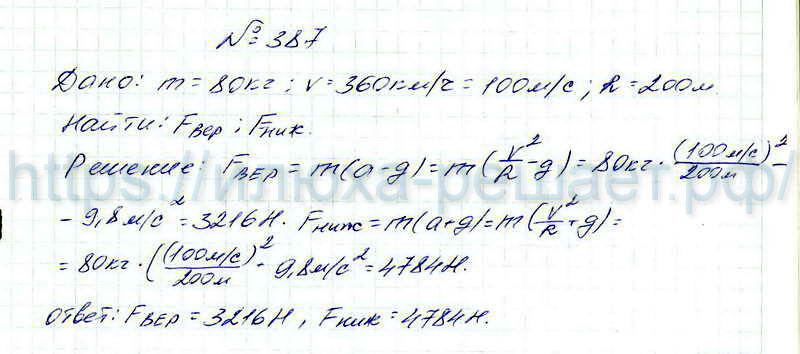 №387
Дано: m = 80кг; v = 360км/ч = 100м/с; R = 200м.
Найти: Fвер; Fниж.
Решение: Fвер = m(a-g) = m(v²/R - g) = 80кг · (100м/с)²/200м -
- 9,8м/с² = 3216Н. Fниж = m(a+g) = m(v²/R + g) =
= 80кг · ((100м/с)²/200м - 9,8м/с² = 4784Н.
Ответ: Fвер = 3216Н, Fниж = 4784Н.
https://илюха-решает.рф/